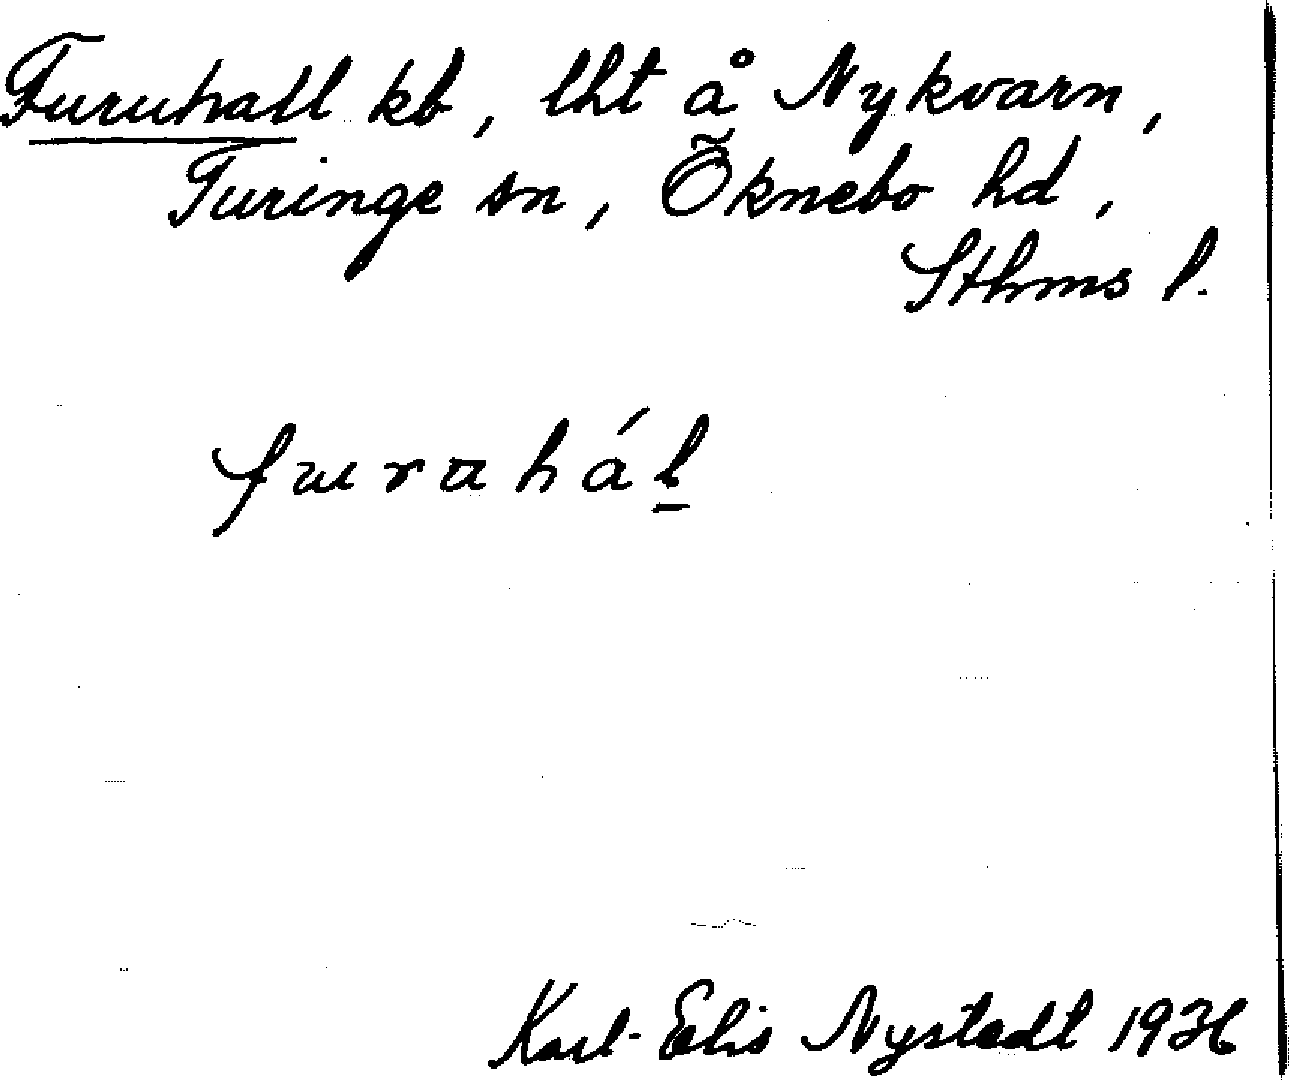 Furuhall kb, lht å Nykvarn,
Turinge sn, Öknebo hd,
Sthms l.
furahál̲
Karl-Elis Nystedt 1936